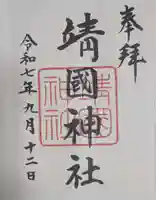 奉拜
靖國神社
令和七年九月十二日
靖國神社